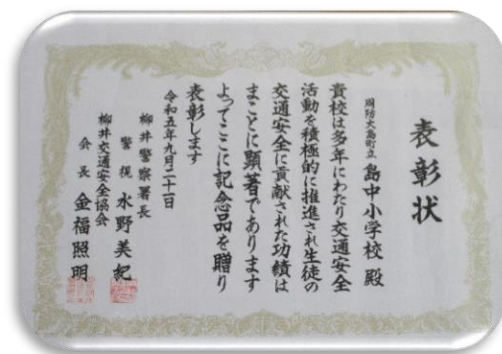 表彰状
周防大島町立 島中小学校 殿
貴校は多年にわたり交通安全
活動を積極的に推進され生徒の
交通安全に貢献された功績は
まことに顕著であります
よってここに記念品を贈り
表彰します
令和五年九月二十一日
柳井警察署長
警視 水野美紀
柳井交通安全協会
会長 金福照明